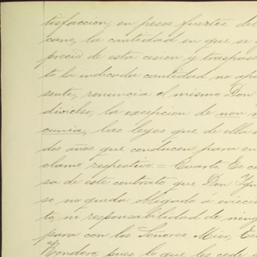 tisfaccion, en pesos fuertes del
cano, la cantidad en que se
precio de esta cesion y traspaso
to la indicada cantidad no apa
sente, renuncia el mismo Don
dividio, la excepcion de non n
cunia, las leyes que de ella
dos años que conducen para en
clamo respectivo = Cuarta Es co
sa de este contrato que Don Ygn
so, no queda obligado á evicc
ta, ni responsabilidad de ning
para con los Señores Mier, 
Mondero pues lo que les cede